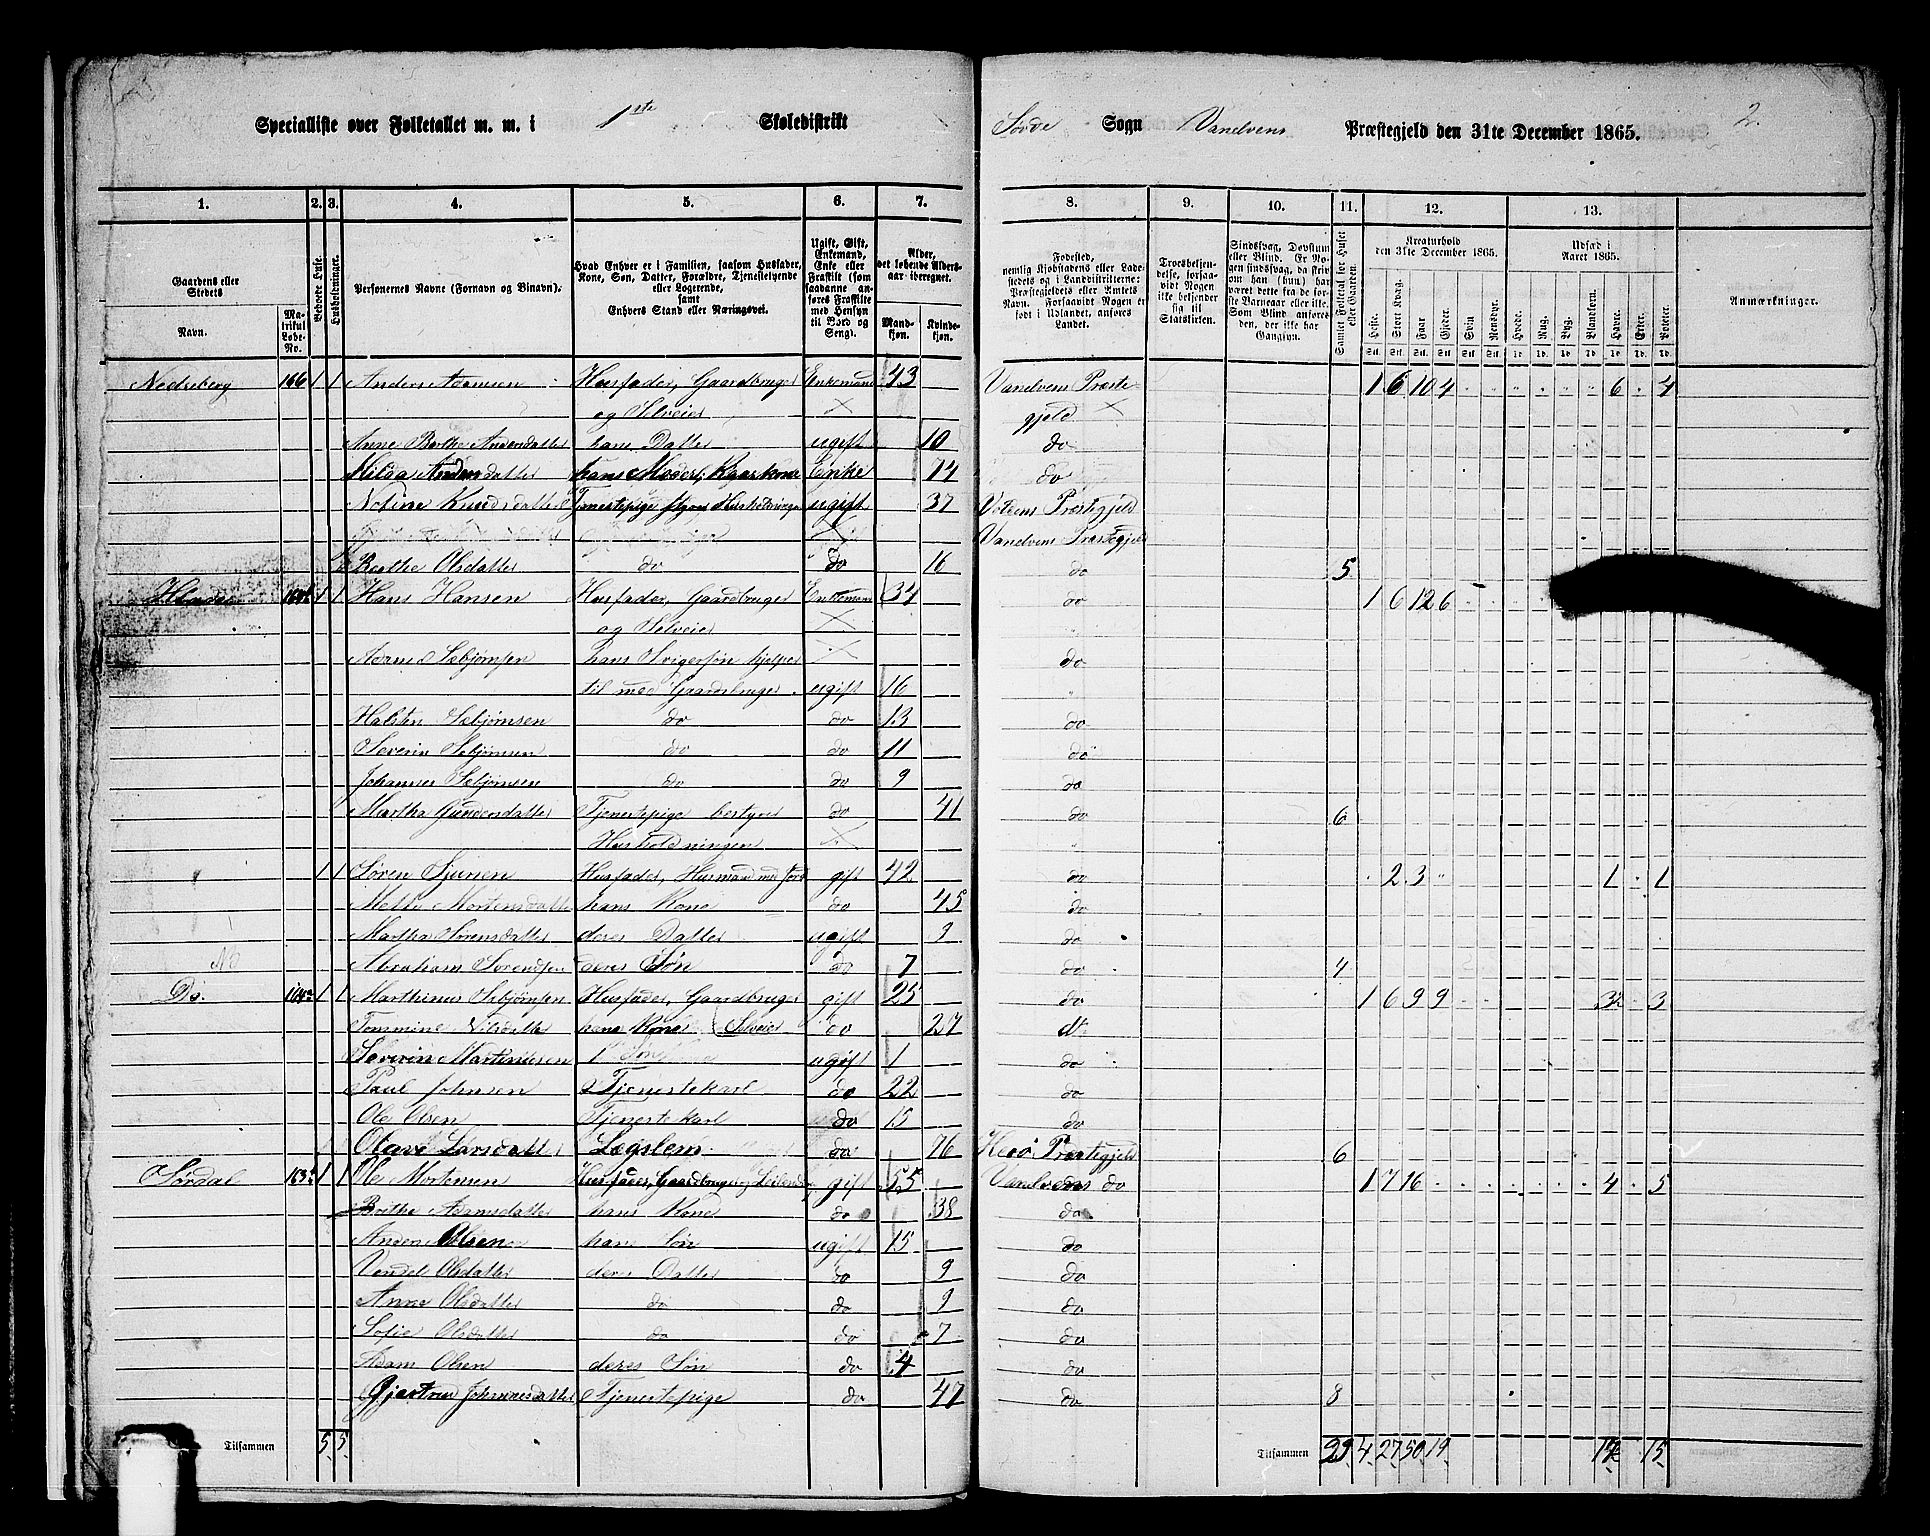 Specialliste over Folketallet m. m. i 1ste Skoledistrikt Sørde Sogn Vanelvens Præstegjeld den 31te December 1865. 2.
1. 2. 3. 4. 5. 6. 7. 8. 9. 10. 11. 12. 13.
Gaardens eller Stedets
Navn.
Matrikul Løbe-No.
Beboede Huse.
Husholdninger.
Personernes Navne (Fornavn og Binavn).
Hvad Enhver er i Familien, saasom Husfader, Kone, Søn, Datter, Forældre, Tjenestetyende eller Logerende, samt Enhvers Stand eller Næringsvei.
Ugift, Gift, Enkemand, Enke eller Fraskilt (som saadanne anføres Fraskilte med Hensyn til Bord og Seng).
Alder, det løbende Aldersaar iberegnet.
Mandkjøn. Kvindekjøn.
Fødested, nemlig Kjøbstadens eller Ladestedets og i Landdistrikterne: Præstegjeldets eller Amtets Navn. Forsaavidt Nogen er født i Udlandet, anføres Landet.
Troesbekjendelse, forsaavidt Nogen ikke bekjender sig til Statskirken.
Sindssvag, Døvstum eller Blind. Er Nogen sindssvag, da skrives om han (hun) har været dette fra de første Barneaar eller ikke. Som Blind anføres den, der ikke har Gangsyn.
Samlet Folketal for Huset eller Gaarden.
Kreaturhold den 31te December 1865.
Heste. Stort Kvæg. Faar. Gjeder. Svin. Rensdyr.
Udsæd i Aaret 1865.
Hvede. Rug. Byg. Blandkorn. Havre. Erter. Poteter.
Anmærkninger.
Nedreberg 166 1 1 Anders Adamsen Husfader, Gaardbruger Enkemand 43 Vanelvens Præste- 1 6 10 4 6 4
og Selveier gjeld
Anne Berthe Andersdatter hans Datter ugift 10 do
Andersdatter hans Moder, Kaarkone Enke 74 do
Knudsdatter Tjenestepige styrer Husholdningen ugift 37 Voldens Præstegjeld
Vanelvens Præstegjeld
Berthe Olsdatter do do 16 do 5
1 1 Hans Hansen Husfader, Gaardbruger Enkemand 34 do 1 6 12 6
og Selveier
Adam Sæbjørnsen hans Svigersøn hjelper do
til med Gaardsbruget ugift 16
Halsten Sæbjørnsen do do 13 do
Severin Sæbjørnsen do do 11 do
Johannes Sæbjørnsen do do 9 do
Martha Gundersdatter Tjenestepige bestyrer do 41 do 6
Husholdningen
1 1 Søren Sjursen Husfader, Husmand med Jord gift 42 do 2 3 1 1
Mette Mortensdatter hans Kone do 45 do
Martha Sørensdatter deres Datter ugift 9 do
Abraham Sørensen deres Søn do 7 do 4
Do. 1 1 Marthinus Sæbjørnsen Husfader, Gaardbruger gift 25 do 1 6 9 9 3½ 3
Tommine Nilsdatter hans Kone (Selveier do 27 do
Severin Martinusen ugift 1 do
Paul Johnsen Tjenestekarl do 22 do
Ole Olsen Tjenestekarl do 15 do
Olave Larsdatter Lægslem do 76 Herø Præstegjeld 6
Sørdal 163 1 1 Ole Mortensen Husfader, Gaardbruger og Leilending gift 55 Vanelvens do 1 7 16 4 5
Brithe Adamsdatter hans Kone do 38 do
Anders Olsen hans Søn ugift 15 do
Vendel Olsdatter deres Datter do 9 do
Anne Olsdatter do do 9 do
Sofie Olsdatter do do 7 do
Adam Olsen deres Søn do 4 do
Gjertrud Johannesdatter Tjenestepige do 47 do 8
Tilsammen 5 5 Tilsammen 29 4 27 50 19 15